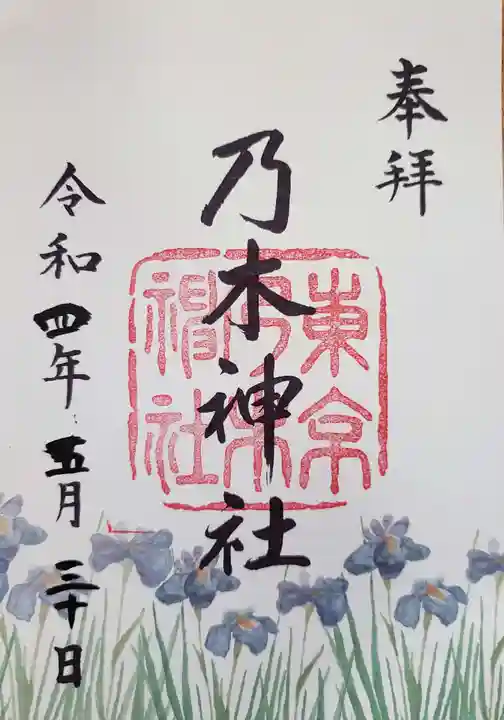 奉拝
乃木神社
東京
乃木
神社
令和四年五月三十日